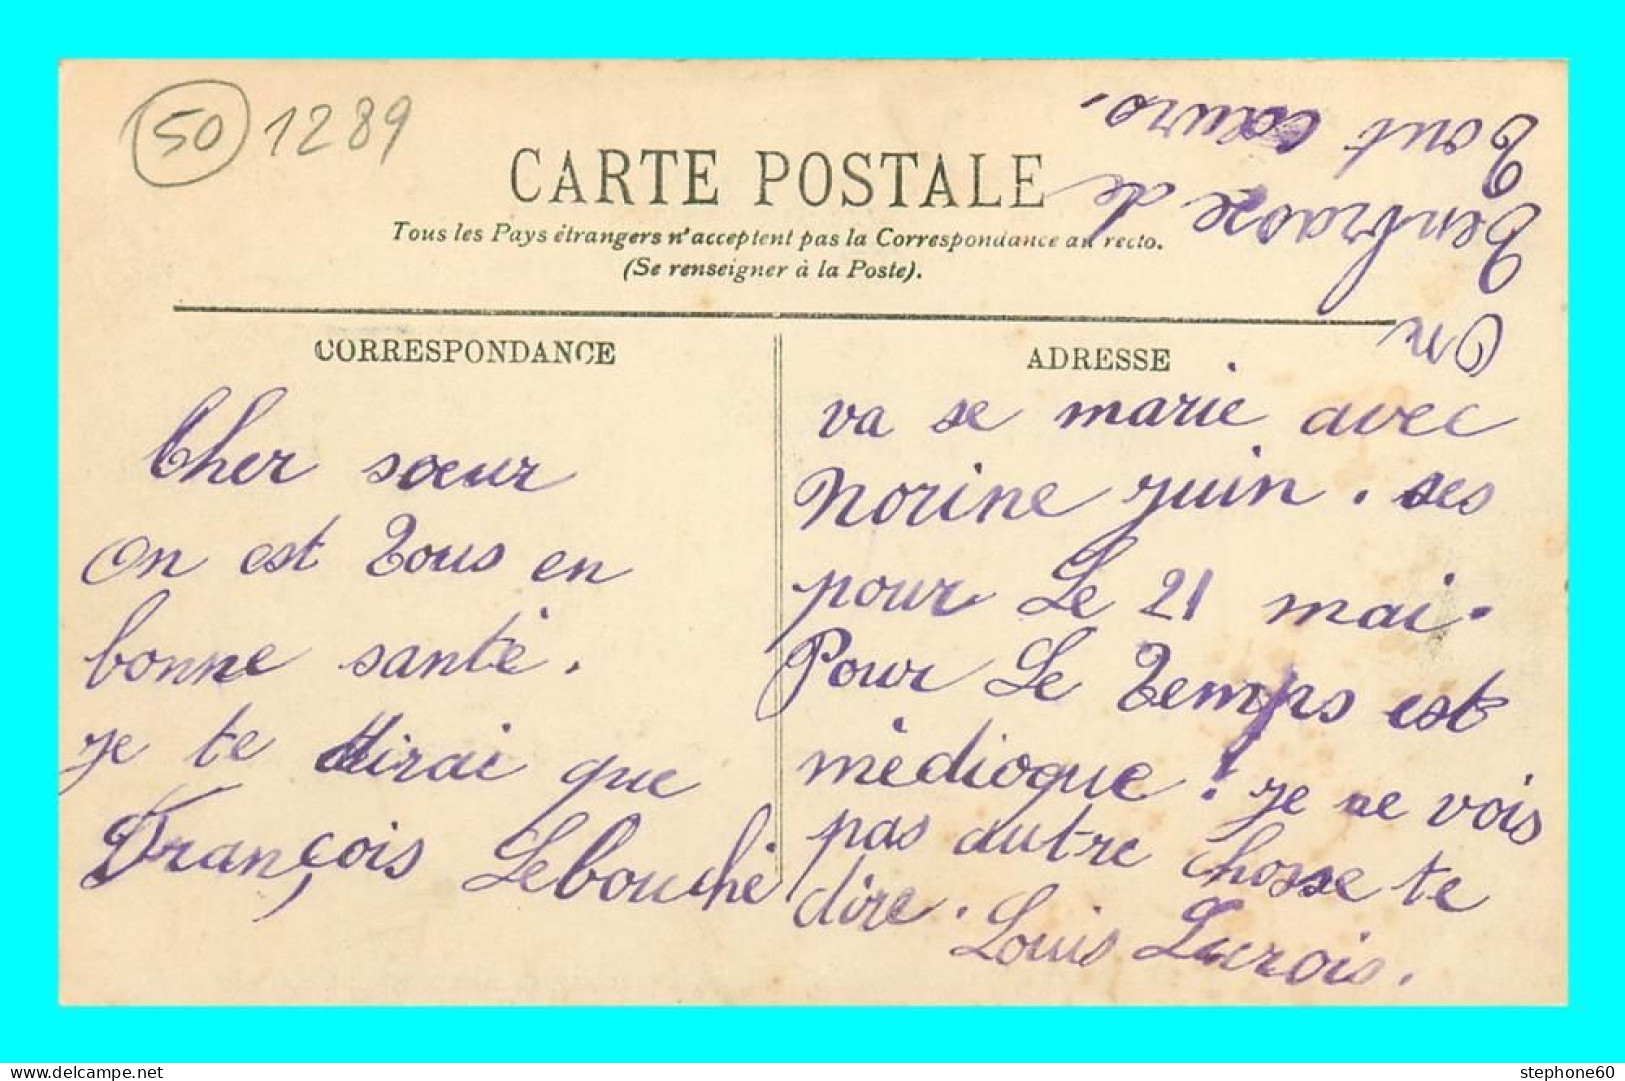 50 1289
CARTE POSTALE
Tous les Pays étrangers n'acceptent pas la Correspondance au recto.
(Se renseigner à la Poste).
CORRESPONDANCE
Cher sœur
On est Tous en
bonne santé.
je te dirai que
François Lebouché
ADRESSE
va se marie avec
Norine juin. ses
pour Le 21 mai.
Pour Le Temps est
médioque ! je ne vois
pas autre chosse te
dire. Louis Lucrois.
On
T'enbrasse de
Tout cœurs.
stephone60